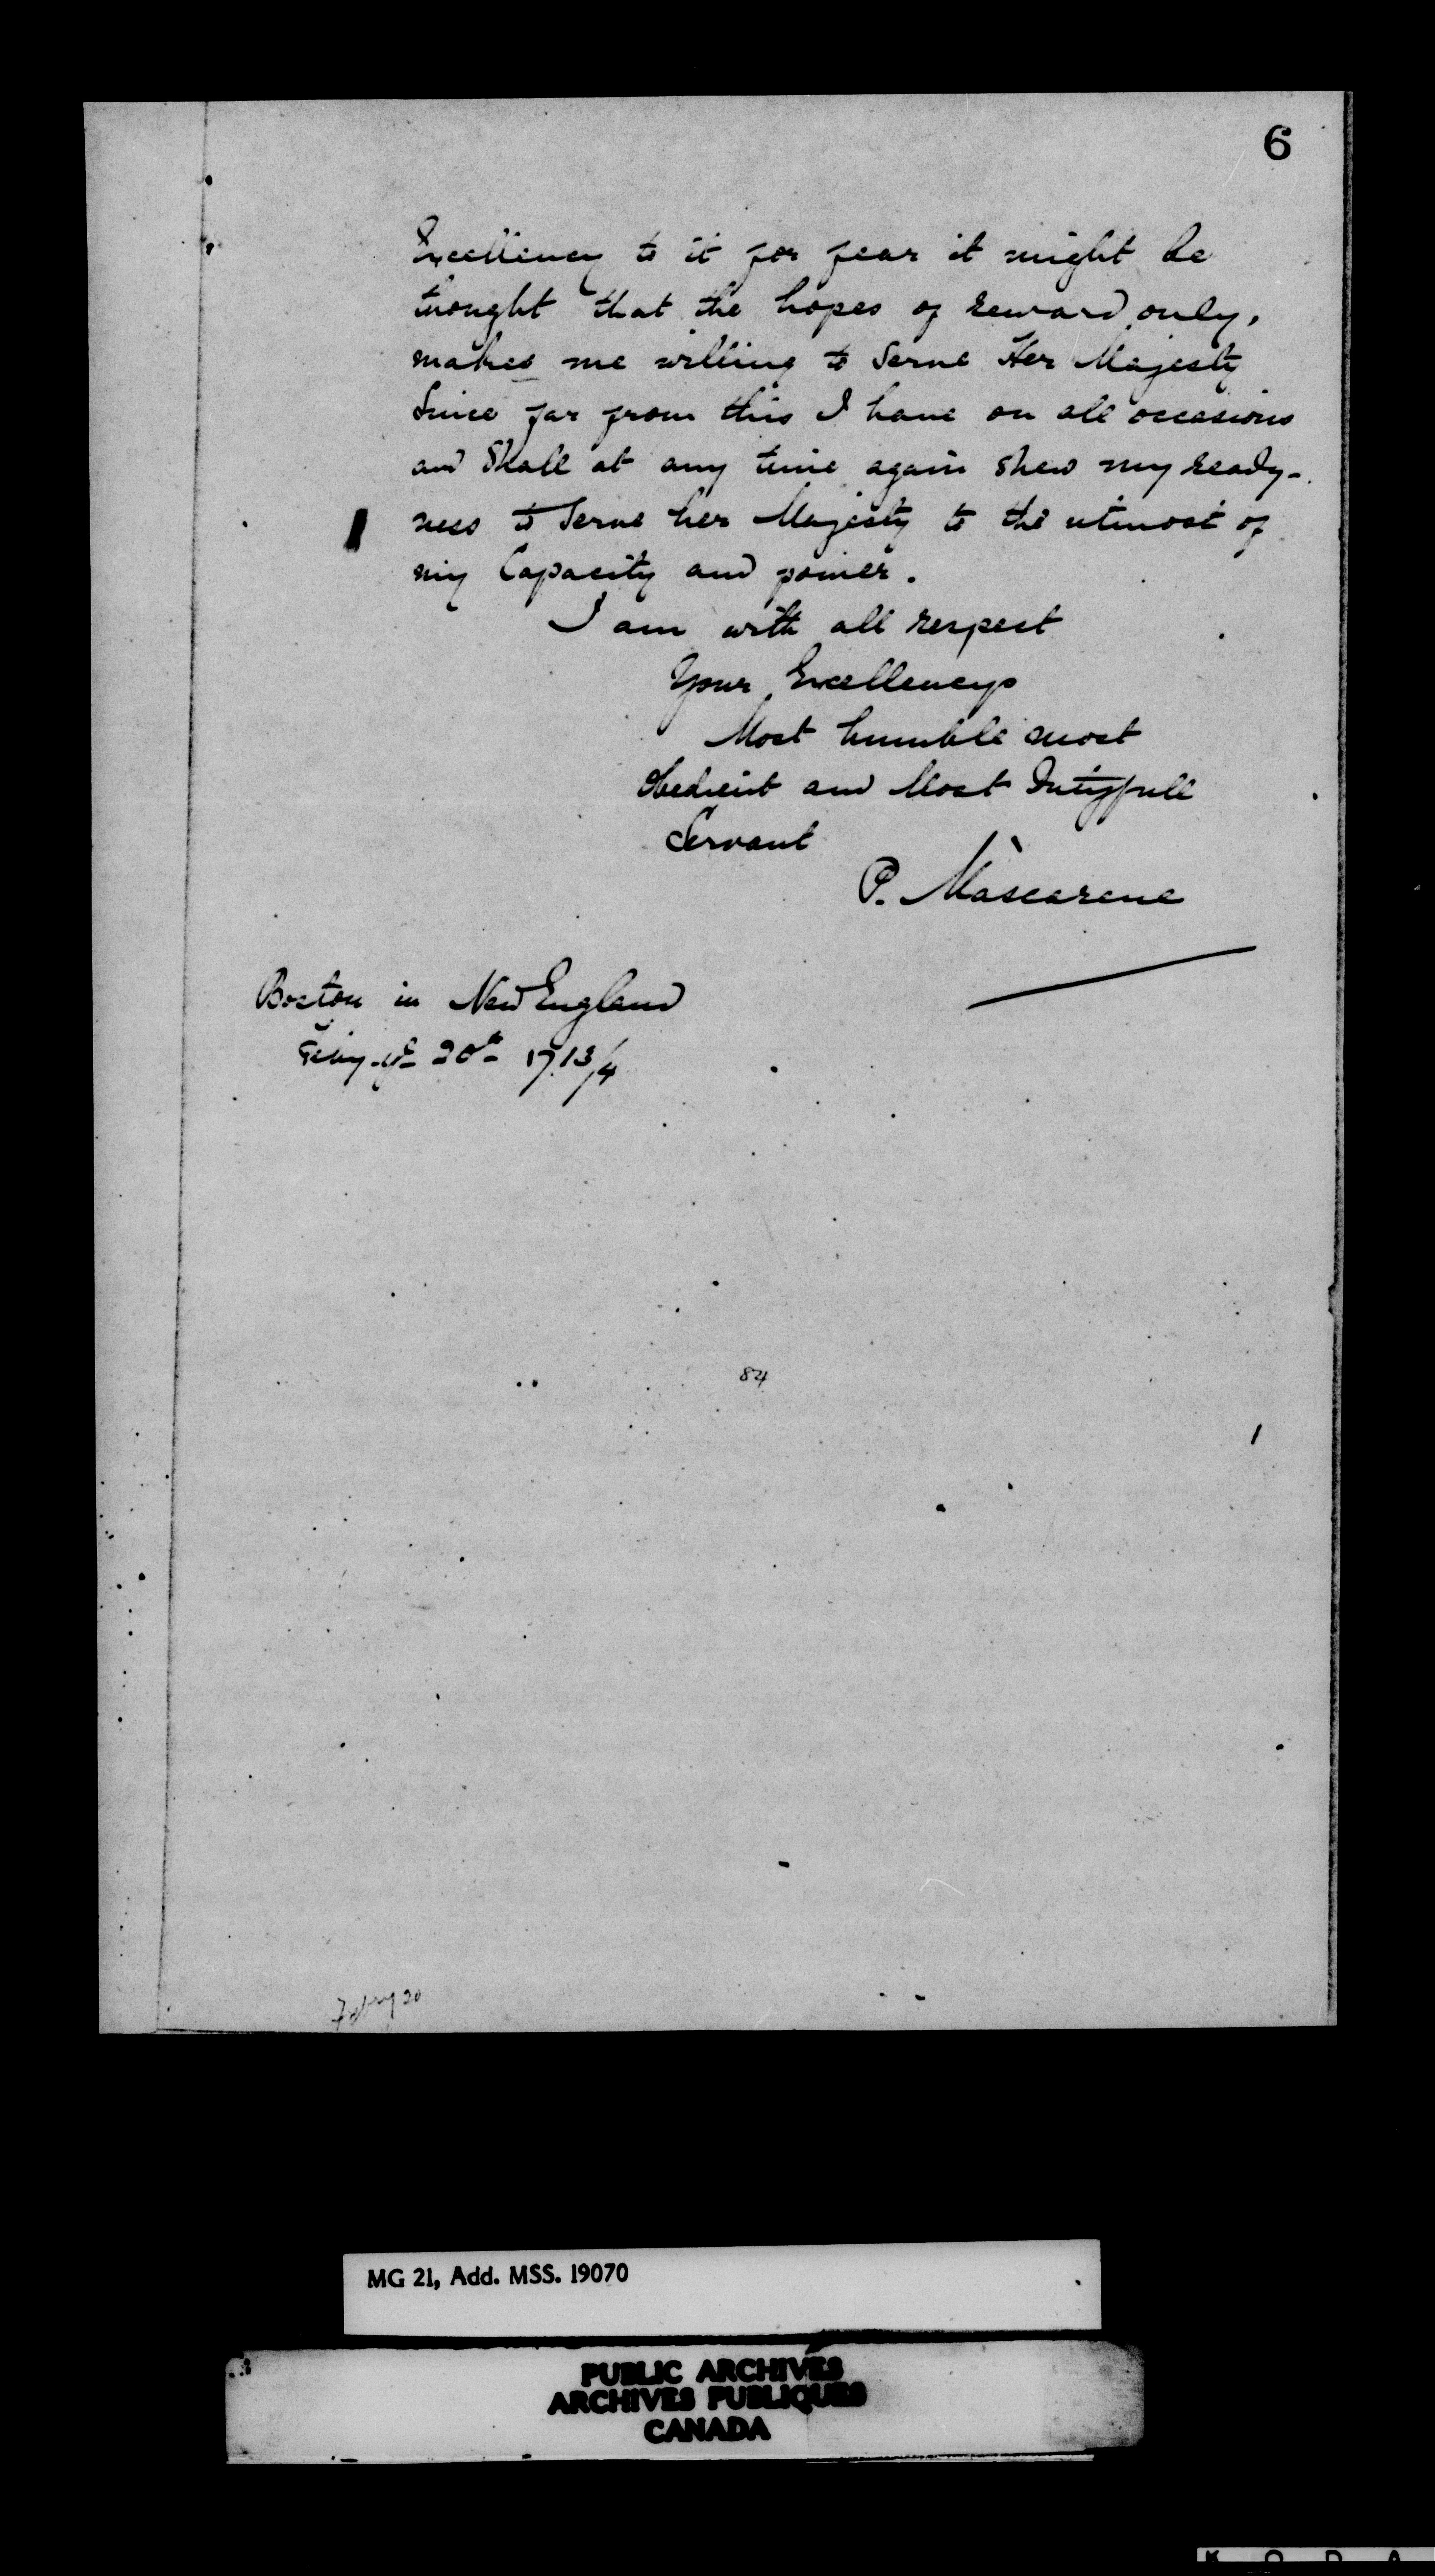 6
Excellency to it for fear it might be
thought that the hopes of reward only,
makes me willing to Serve Her Majesty
Since far from this I have on all occasions
and Shall at any time again shew my ready-
ness to Serve her Majesty to the utmost of
my Capacity and power.
I am with all respect
Your Excellencys
Most humble most
Obedient and Most Dutyfull
Servant
P. Mascarene
Boston in New England
Feby. ye 20th 1713/4
84
Febry 20
MG 21, Add. MSS. 19070
PUBLIC ARCHIVES
ARCHIVES PUBLIQUES
CANADA
K O D A